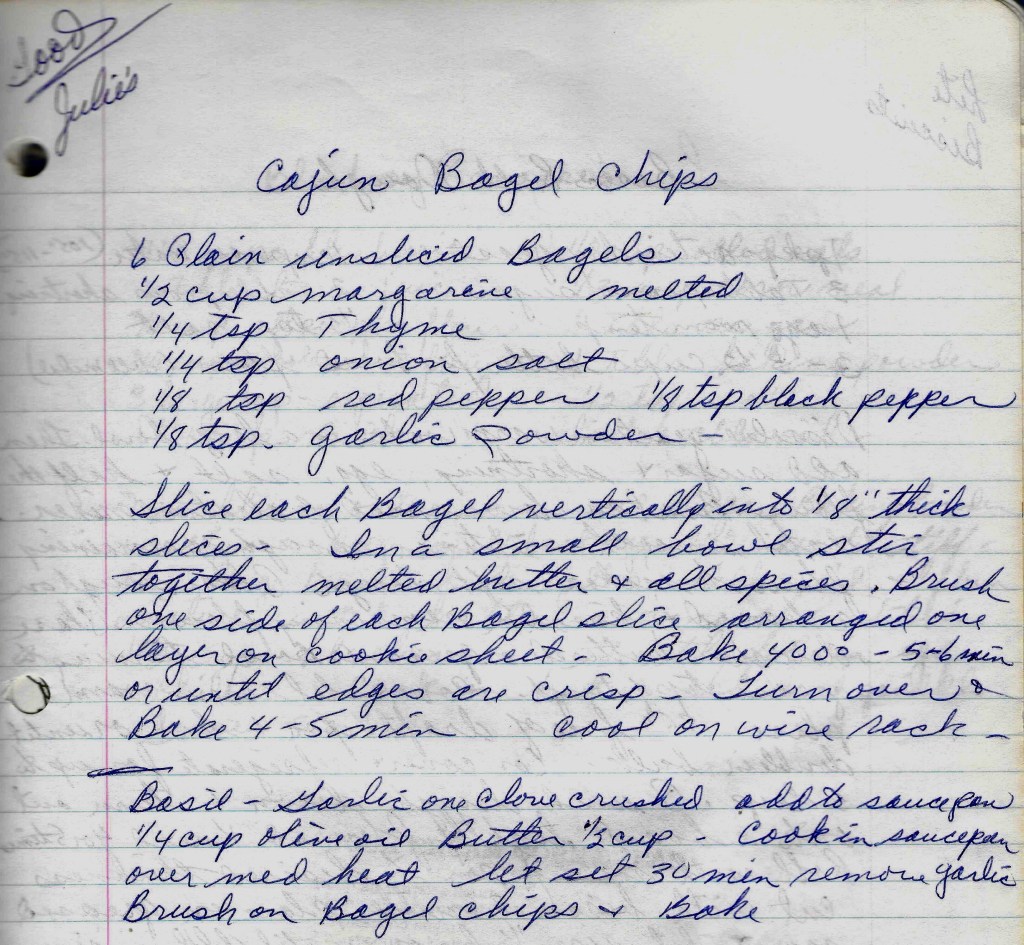 Good
Julie's
Cajun Bagel Chips
6 Plain unsliced Bagels
1/2 cup margarine melted
1/4 tsp Thyme
1/4 tsp onion salt
1/8 tsp red pepper 1/8 tsp black pepper
1/8 tsp. garlic powder -
Slice each Bagel vertically into 1/8" thick
slices - In a small bowl stir
together melted butter & all spices. Brush
one side of each Bagel slice arranged one
layer on cookie sheet - Bake 400° - 5-6 min
or until edges are crisp - Turn over &
Bake 4-5 min cool on wire rack -
Basil - Garlic one clove crushed add to saucepan
1/4 cup olive oil Butter 1/2 cup - Cook in saucepan
over med heat let set 30 min remove garlic
Brush on Bagel chips & Bake